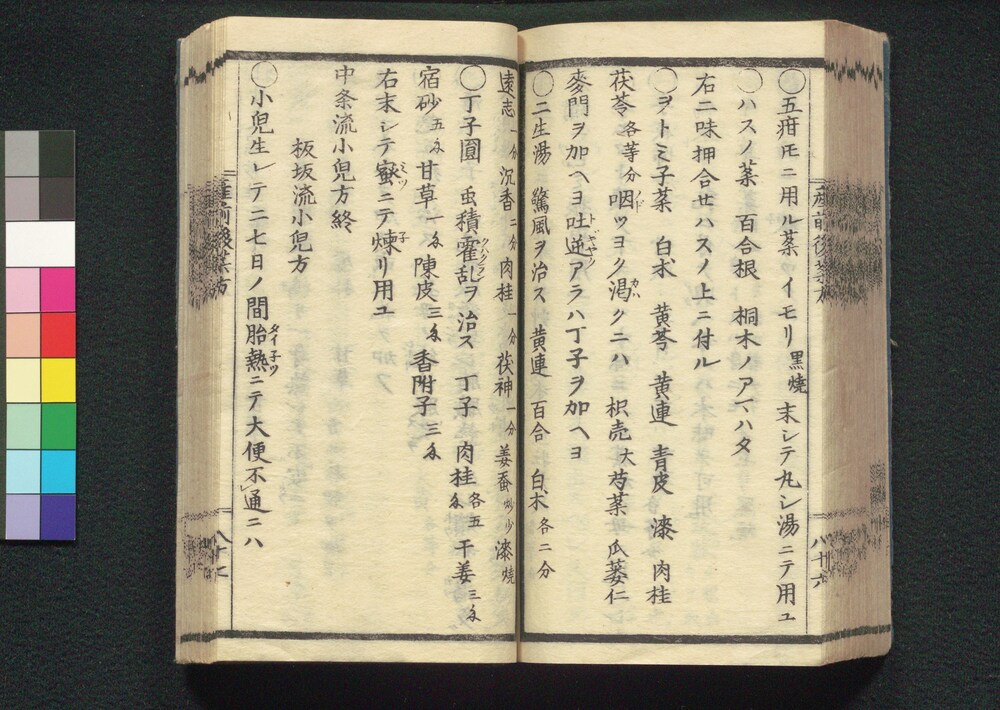 ◯五疳モニ用ル薬ツイモリ黒焼末シテ丸シ湯ニテ用ユ
◯ハスノ葉 百合根 桐木ノアマハタ
右二味押合せハスノ上ニ付ル
◯ヲトミ子薬 白朮 黄芩 黄連 青皮 漆 肉桂
茯苓各等分咽ツヨク渇クニハ枳売大芍薬瓜蔞仁
麥門ヲ加ヘヨ吐逆アラハ丁子ヲ加ヘヨ
◯二生湯 驚風ヲ治ス 黄連 百合 白朮各二分
遠志一分沉香二分肉桂一分茯神一分姜蚕炒少漆焼
◯丁子圓 虫積霍乱ヲ治ス 丁子 肉桂各五匁 干姜三匁
宿砂五匁甘草一匁陳皮三匁香附子三匁
右末シテ蜜ニテ煉リ用ユ
中条流小兒方終
板坂流小兒方
◯小兒生レテ二七日ノ間胎熱ニテ大便不通ニハ
産前後薬方
八十六
産前後薬方